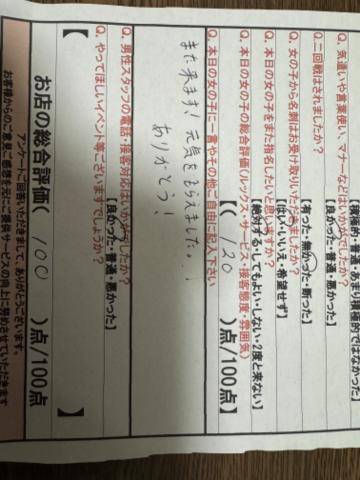 【積極的・普通・あまり積極的ではなかった】
Q. 気遣いや言葉使い、マナーなどはいかがでしたか?
【良かった・普通・悪かった】
Q. 二回戦はされましたか?
【有った・無かった・断った】
Q. 女の子から名刺はお受け取りいただけましたか?
【はい・いいえ・希望せず】
Q. 本日の女の子をまた指名したいと思いますか?
【絶対する・してもよい・しない・2度と来ない】
Q. 本日の女の子の総合評価(ルックス・サービス・接客態度・雰囲気)
【( 120 )点/100点】
Q. 本日の女の子に一言やその他ご自由に記入下さい
また来ます!元気をもらえました。
ありがとう!
Q. 男性スタッフの電話・接客対応はいかがでしたか?
【良かった・普通・悪かった】
Q. やってほしいイベント等ございますでしょうか?
【 】
お店の総合評価( 100 )点/100点
アンケートに回答いただきまして、ありがとうございます。
お客様からのご意見ご感想を元にご提供サービスの向上に努めさせていただきます